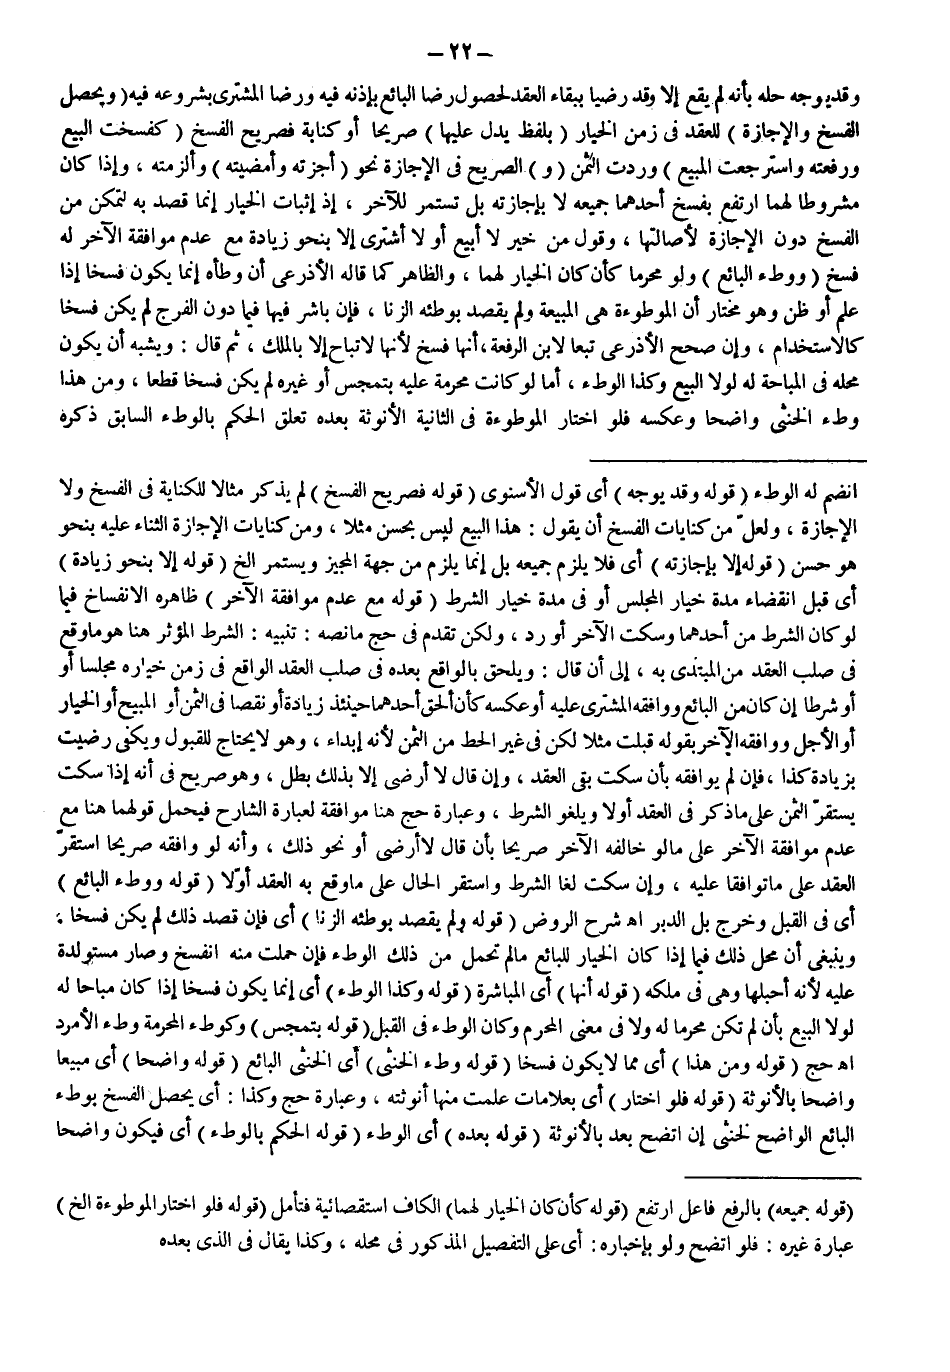 – ٢٢ –
وقد يوجه حله بأنه لم يقع إلا وقد رضيا ببقاء العقد لحصول رضا البائع بإذنه فيه ورضا المشترى بشروعه فيه ( ويحصل
الفسخ والإجازة ) للعقد فى زمن الخيار ( بلفظ يدل عليها ) صريحا أو كناية فصريح الفسخ ( كفسخت البيع
ورفعته واسترجعت المبيع ) ورددت الثمن ( و ) الصريح فى الإجازة نحو ( أجزته وأمضيته ) وألزمته ، وإذا كان
مشروطا لهما ارتفع بفسخ أحدهما جميعه لا بإجازته بل تستمر للآخر ، إذ إثبات الخيار إنما قصد به لتمكن من
الفسخ دون الإجازة لأصالتها ، وقول من خير لا أبيع أو لا أشترى إلا بنحو زيادة مع عدم موافقة الآخر له
فسخ ( ووطء البائع ) ولو محرما كأن كان الخيار لهما ، والظاهر كما قاله الأذرعى أن وطأه إنما يكون فسخا إذا
علم أو ظن وهو مختار أن الموطوءة هى المبيعة ولم يقصد بوطئه الزنا ، فإن باشر فيها فيما دون الفرج لم يكن فسخا
كالاستخدام ، وإن صحح الأذرعى تبعا لابن الرفعة ، أنها فسخ لأنها لاتباح إلا بالملك ، ثم قال : ويشبه أن يكون
محله فى المباحة له لولا البيع وكذا الوطء ، أما لو كانت محرمة عليه بتمجس أو غيره لم يكن فسخا قطعا ، ومن هذا
وطء الخنثى واضحا وعكسه فلو اختار الموطوءة فى الثانية الأنوثة بعده تعلق الحكم بالوطء السابق ذكره
انضم له الوطء ( قوله وقد يوجه ) أى قول الأسنوى ( قوله فصريح الفسخ ) لم يذكر مثالا للكناية فى الفسخ ولا
الإجازة ، ولعلّ من كنايات الفسخ أن يقول : هذا البيع ليس بحسن مثلا ، ومن كنايات الإجازة الثناء عليه بنحو
هو حسن ( قوله إلا بإجازته ) أى فلا يلزم جميعه بل إنما يلزم من جهة المجيز ويستمر الخ ( قوله إلا بنحو زيادة )
أى قبل انقضاء مدة خيار المجلس أو فى مدة خيار الشرط ( قوله مع عدم موافقة الآخر ) ظاهره الانفساخ فيما
لو كان الشرط من أحدهما وسكت الآخر أو رد ، ولكن تقدم فى حج مانصه : تنبيه : الشرط المؤثر هنا هوماوقع
فى صلب العقد من المبتدى به ، إلى أن قال : ويلحق بالواقع بعده فى صلب العقد الواقع فى زمن خياره مجلسا أو
أو شرطا إن كان من البائع ووافقه المشترى عليه أو عكسه كأن ألحق أحدهما حينئذ زيادة أو نقصا فى الثمن أو المبيح أو الخيار
أو الأجل ووافقه الآخر بقوله قبلت مثلا لكن فى غير الحط من الثمن لأنه إبداء ، وهو لايحتاج للقبول ويكفى رضيت
بزيادة كذا ، فإن لم يوافقه بأن سكت بقى العقد ، وإن قال لا أرضى إلا بذلك بطل ، وهو صريح فى أنه إذا سكت
يستقرّ الثمن على ماذكر فى العقد أولا ويلغو الشرط ، وعبارة حج هنا موافقة لعبارة الشارح فيحمل قولهما هنا مع
عدم موافقة الآخر على مالو خالفه الآخر صريحا بأن قال لاأرضى أو نحو ذلك ، وأنه لو وافقه صريحا استقرّ
العقد على ماتوافقا عليه ، وإن سكت لغا الشرط واستقر الحال على ماوقع به العقد أوّلا ( قوله ووطء البائع )
أى فى القبل وخرج بل الدبر اه شرح الروض ( قوله ولم يقصد بوطئه الزنا ) أى فإن قصد ذلك لم يكن فسخا ،
وينبغى أن محل ذلك فيما إذا كان الخيار للبائع مالم تحمل من ذلك الوطء فإن حملت منه انفسخ وصار مستولدة
عليه لأنه أحبلها وهى فى ملكه ( قوله أنها ) أى المباشرة ( قوله وكذا الوطء ) أى إنما يكون فسخا إذا كان مباحا له
لولا البيع بأن لم تكن محرما له ولا فى معنى المحرم وكان الوطء فى القبل ( قوله بتمجس ) وكوطء المحرمة وطء الأمرد
اه حج ( قوله ومن هذا ) أى مما لايكون فسخا ( قوله وطء الخنثى ) أى الخنثى البائع ( قوله واضحا ) أى مبيعا
واضحا بالأنوثة ( قوله فلو اختار ) أى بعلامات علمت منها أنوثته ، وعبارة حج وكذا : أى يحصل الفسخ بوطء
البائع الواضح لخنثى إن اتضح بعد بالأنوثة ( قوله بعده ) أى الوطء ( قوله الحكم بالوطء ) أى فيكون واضحا
(قوله جميعه) بالرفع فاعل ارتفع (قوله كأن كان الخيار لهما) الكاف استقصائية فتأمل (قوله فلو اختار الموطوءة الخ )
عبارة غيره : فلو اتضح ولو بإخباره : أى على التفصيل المذكور فى محله ، وكذا يقال فى الذى بعده